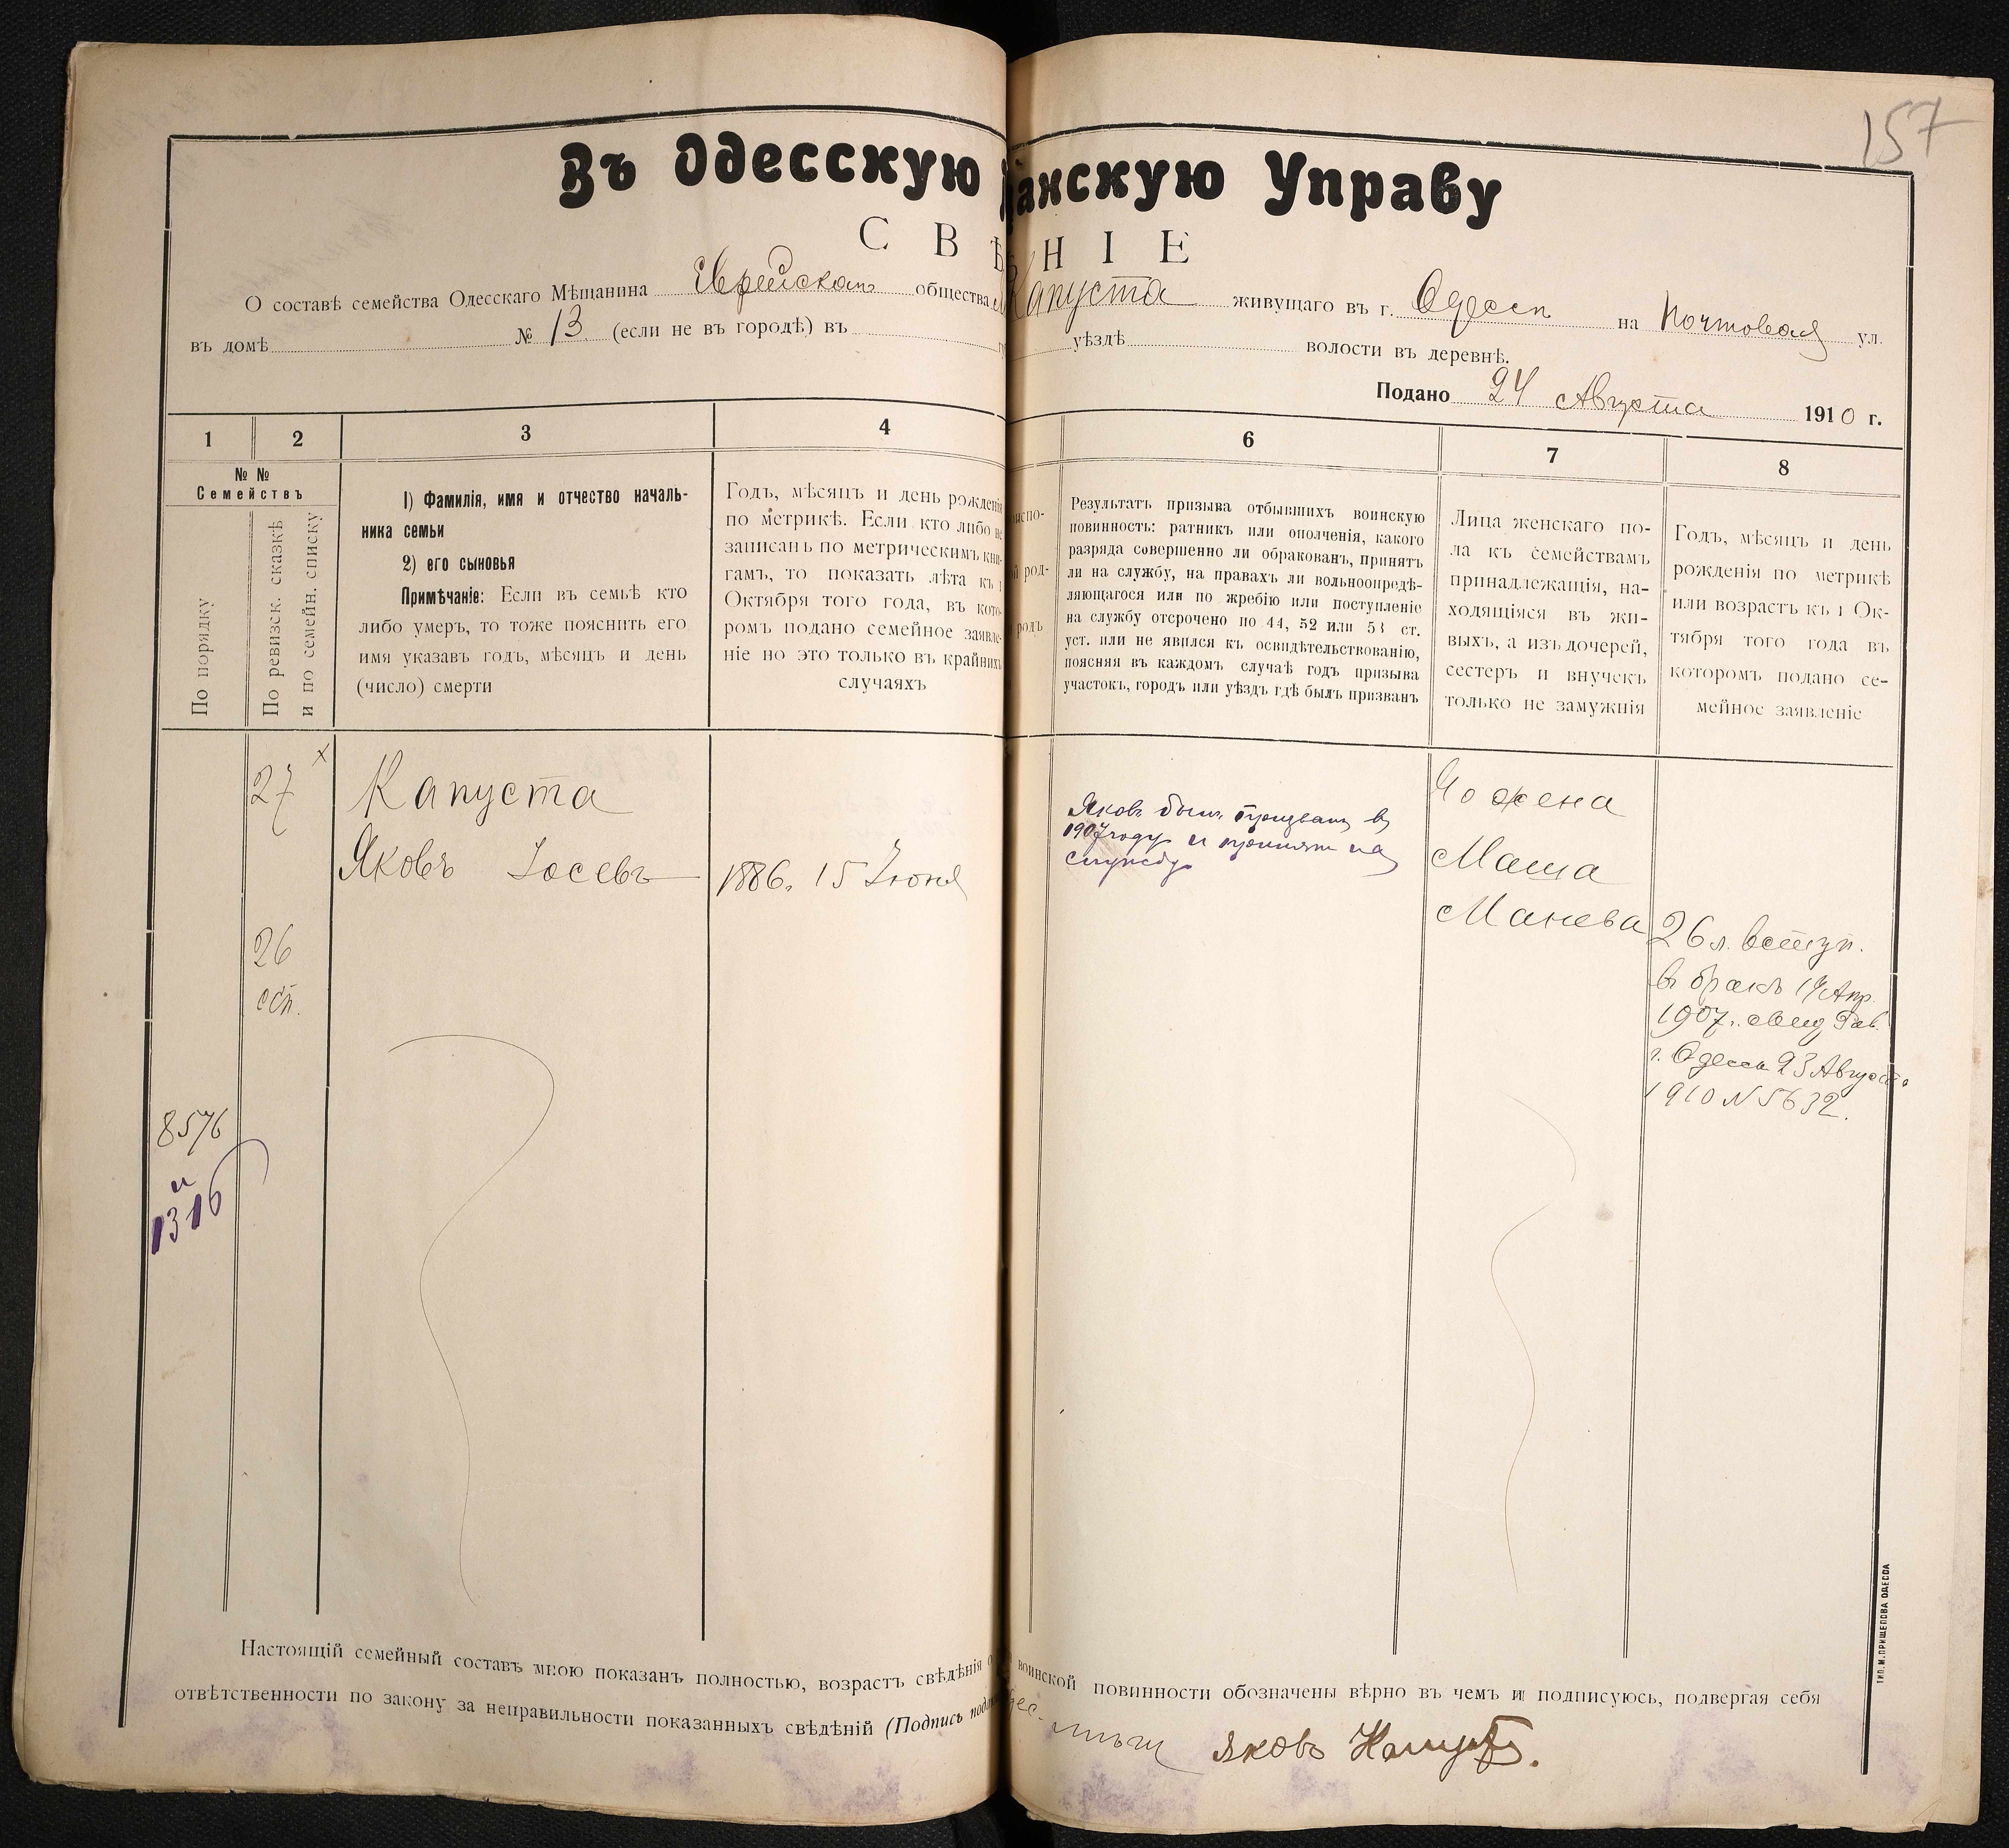 157
Въ Одесскую анскую Управу
С В Ѣ Н І Е
О составѣ семейства Одесскаго Мѣщанина Еврейскаго общества Капуста живущаго въ г. Одессѣ на Почтовая ул.
въ домѣ № 13. (если не въ городѣ) въ уѣздѣ волости въ деревнѣ.
Подано 24 Августа 1910 г.
1 2 3 4 6 7 8
№ №
Семействъ
По порядку
По ревизск. сказкѣ
и по семейн. списку
1) Фамилія, имя и отчество началь-
ника семьи
2) его сыновья
Примѣчаніе: Если въ семьѣ кто
либо умеръ, то тоже пояснить его
имя указавъ годъ, мѣсяцъ и день
(число) смерти
Годъ, мѣсяцъ и день рожденія
по метрикѣ. Если кто либо не
записанъ по метрическимъ кни-
гамъ, то показать лѣта къ 1
Октября того года, въ кото-
ромъ подано семейное заявле-
ніе но это только въ крайнихъ
случаяхъ
испо-
род-
родъ
Результатъ призыва отбывшихъ воинскую
повинность: ратникъ или ополченія, какого
разряда совершенно ли обракованъ, принятъ
ли на службу, на правахъ ли вольноопредѣ-
ляющагося или по жребію или поступленіе
на службу отсрочено по 44, 52 или 53 ст.
уст. или не явился къ освидѣтельствованію,
поясняя въ каждомъ случаѣ годъ призыва
участокъ, городъ или уѣздъ гдѣ былъ призванъ
Лица женскаго по-
ла къ семействамъ
принадлежащія, на-
ходящіяся въ жи-
выхъ, а изъ дочерей,
сестеръ и внучекъ
только не замужнія
Годъ, мѣсяцъ и день
рожденія по метрикѣ
или возрастъ къ 1 Ок-
тября того года въ
которомъ подано се-
мейное заявленіе
27 х
Капуста
Яковъ Іосевъ
1886. 15 Іюня
Яковъ былъ призванъ въ
1907 году и принятъ на
службу
Его жена
Маша
Манева
26
сп.
26 л. вступ.
въ бракъ 14 Апр.
1907 г. свид Рав.
г. Одессы 23 Августа
1910 N 5632.
8576
и
1316
Настоящій семейный составъ мною показанъ полностью, возрастъ свѣдѣнія о воинской повинности обозначены вѣрно въ чемъ и подписуюсь, подвергая себя
отвѣтственности по закону за неправильности показанныхъ свѣдѣній (Подпись
Яковъ Капуста.
ТИП. М. ПРИЩЕПОВА ОДЕССА